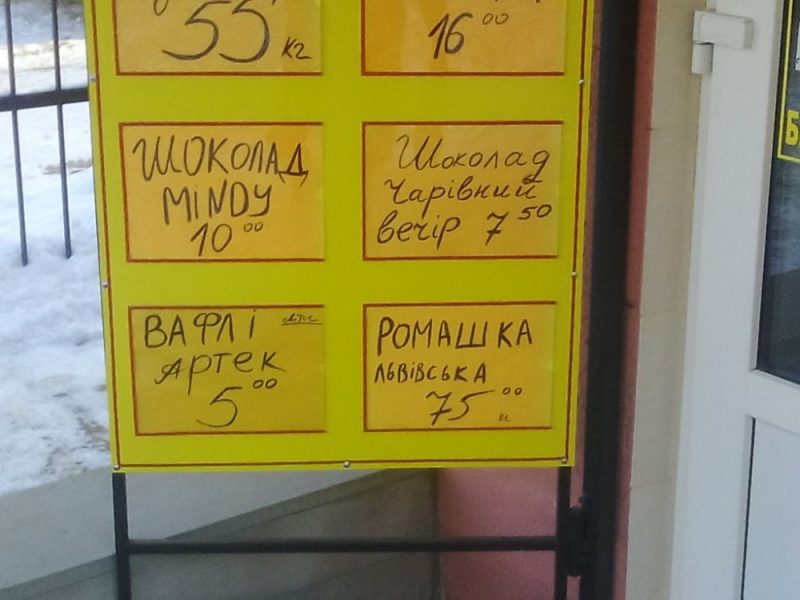 55 кг
16 00
ШОКОЛАД
MINDY
10 00
Шоколад
Чарівний
вечір 7 50
ВАФЛІ
АРТЕК
5 00
РОМАШКА
ЛЬВІВСЬКА
75 00
кг
Б